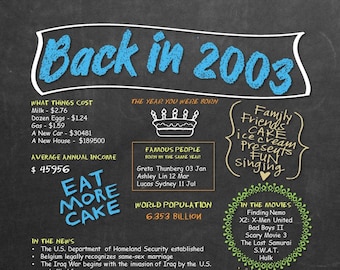 Back in 2003
WHAT THINGS COST
Milk - $2.76
Dozen Eggs - $1.24
Gas - $1.59
A New Car - $30481
A New House - $189500
AVERAGE ANNUAL INCOME
$ 45956
EAT
MORE
CAKE
THE YEAR YOU WERE BORN
FAMOUS PEOPLE
BORN IN THE SAME YEAR
Greta Thunberg 03 Jan
Ashley Lin 12 Mar
Lucas Sydney 11 Jul
WORLD POPULATION
6.353 BILLION
Family
Friends
CAKE
ice cream
Presents
FUN
Singing
IN THE MOVIES
Finding Nemo
X2: X-Men United
Bad Boys II
Scary Movie 3
The Last Samurai
S.W.A.T.
Hulk
IN THE NEWS
The U.S. Department of Homeland Security established
Belgium legally recognizes same-sex marriage
The Iraq War begins with the invasion of Iraq by the U.S.